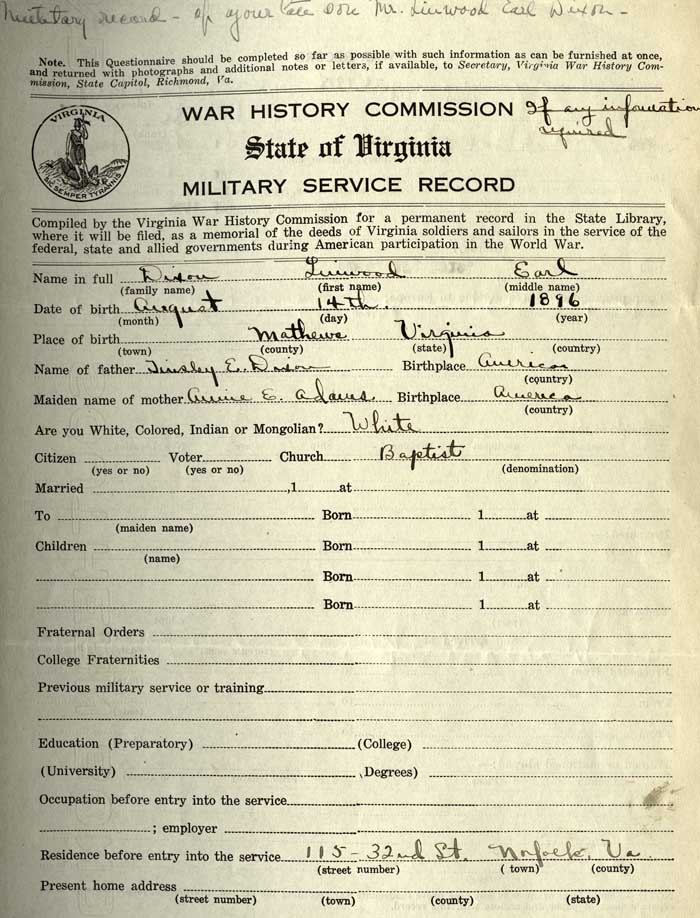 Military record - of your late son Mr. Linwood Earl Dixon -
Note. This Questionnaire should be completed so far as possible with such information as can be furnished at once,
and returned with photographs and additional notes or letters, if available, to Secretary, Virginia War History Com-
mission, State Capitol, Richmond, Va.
VIRGINIA
SIC SEMPER TYRANNIS
WAR HISTORY COMMISSION If any information
required
State of Virginia
MILITARY SERVICE RECORD
Compiled by the Virginia War History Commission for a permanent record in the State Library,
where it will be filed, as a memorial of the deeds of Virginia soldiers and sailors in the service of the
federal, state and allied governments during American participation in the World War.
Name in full Dixon Linwood Earl
(family name) (first name) (middle name)
Date of birth August 14th. 1896
(month) (day) (year)
Place of birth Mathews Virginia
(town) (county) (state) (country)
Name of father Tinsley E. Dixon Birthplace America
(country)
Maiden name of mother Annie E. Adams Birthplace America
(country)
Are you White, Colored, Indian or Mongolian? White
Citizen Voter Church Baptist
(yes or no) (yes or no) (denomination)
Married ,1 at
To Born 1 at
(maiden name)
Children Born 1 at
(name)
Born 1 at
Born 1 at
Fraternal Orders
College Fraternities
Previous military service or training
Education (Preparatory) (College)
(University) (Degrees)
Occupation before entry into the service
; employer
Residence before entry into the service 115-32nd St. Norfolk, Va.
(street number) (town) (county)
Present home address
(street number) (town) (county) (state)